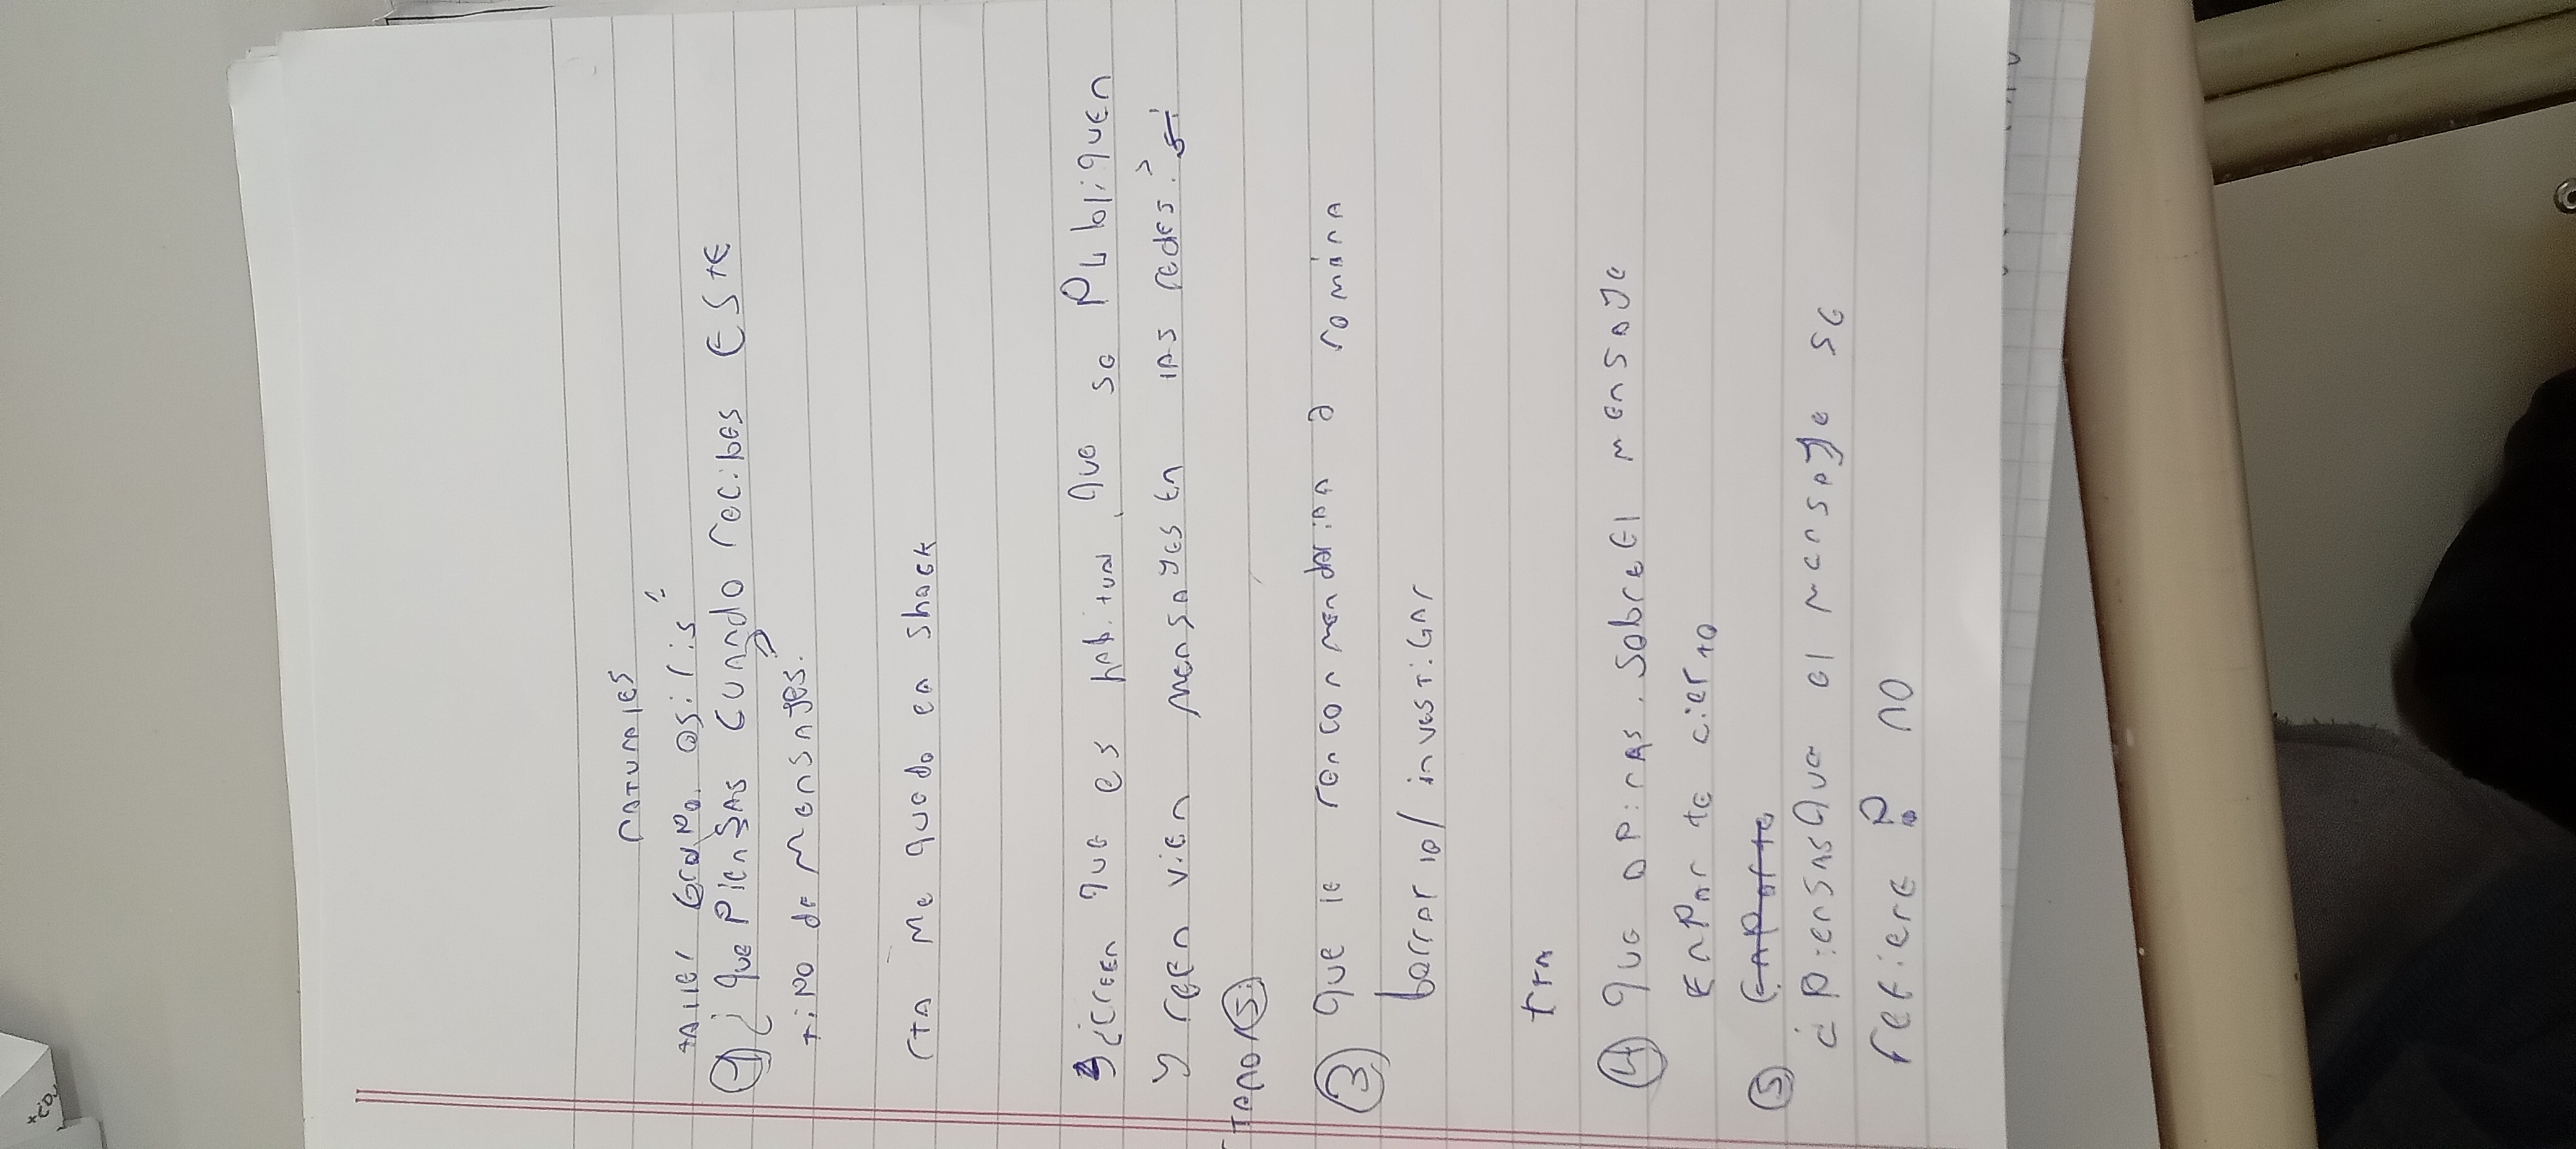 naturales
taller Grupo osiris
1 ¿ que PienSAS CuAndo recibes ESTE
tiPO de MensAJes.
rTA Me quedo en shock
2 ¿creen que es hAbituAl que se PUbliquen
y reenvien mensAyes en lAs redes? si
3 que le renconmendarian a romina
borrar lo/ investiGAr
4 que oPinAs. sobre El mensAJe
EnPArte cierto
5 EnParte
¿ PiensAs que el mensAJe se
refiere no